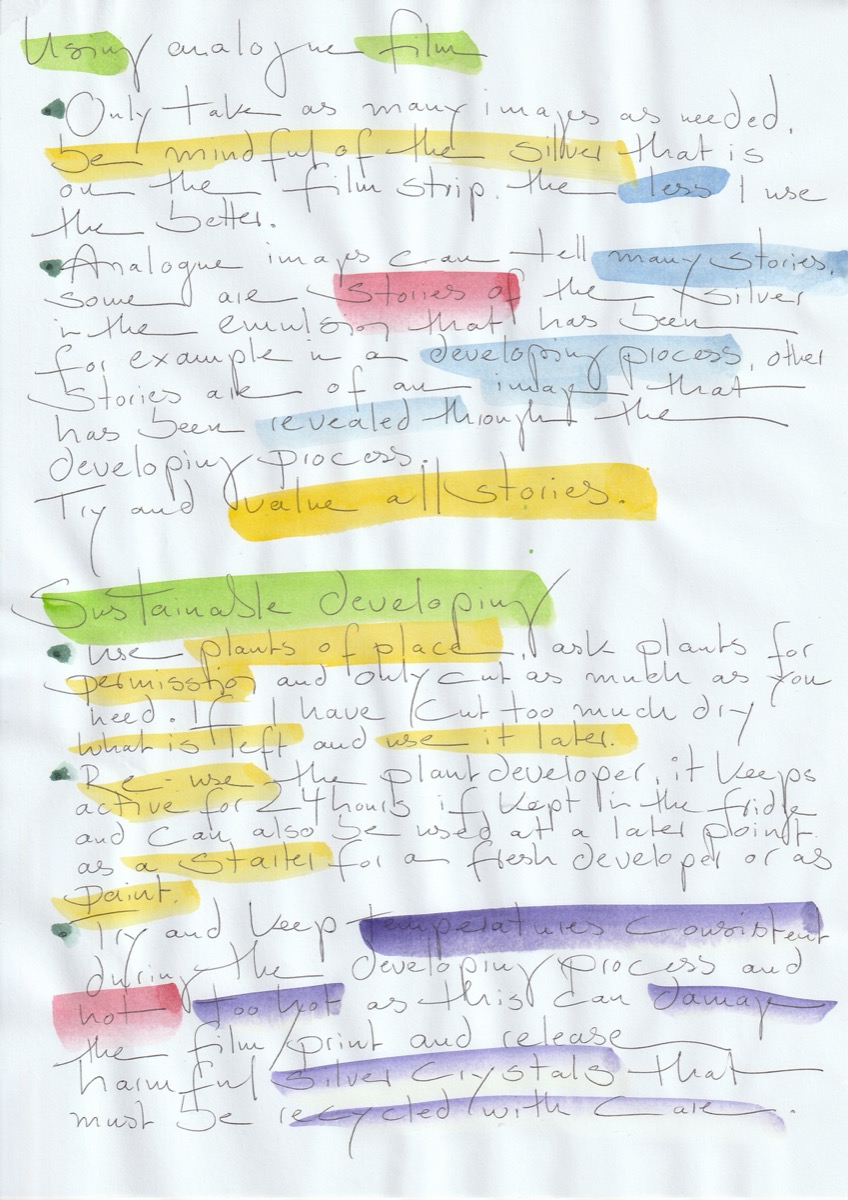 Using analogue film
Only take as many images as needed,
be mindful of the silver that is
on the film strip. the less I use
the better.
Analogue images can tell many stories,
some are stories of the silver
in the emulsion that has been
for example in a developing process, other
stories are of an image that
has been revealed through the
developing process.
Try and value all stories.
Sustainable developing
Use plants of place, ask plants for
permission and only cut as much as you
need. If I have cut too much dry
what is left and use it later.
Re-use the plant developer, it keeps
active for 24 hours if kept in the fridge
and can also be used at a later point
as a starter for a fresh developer or as
paint.
Try and keep temperatures consistent
during the developing process and
not too hot as this can damage
the film/print and release
harmful silver crystals that
must be recycled with care.